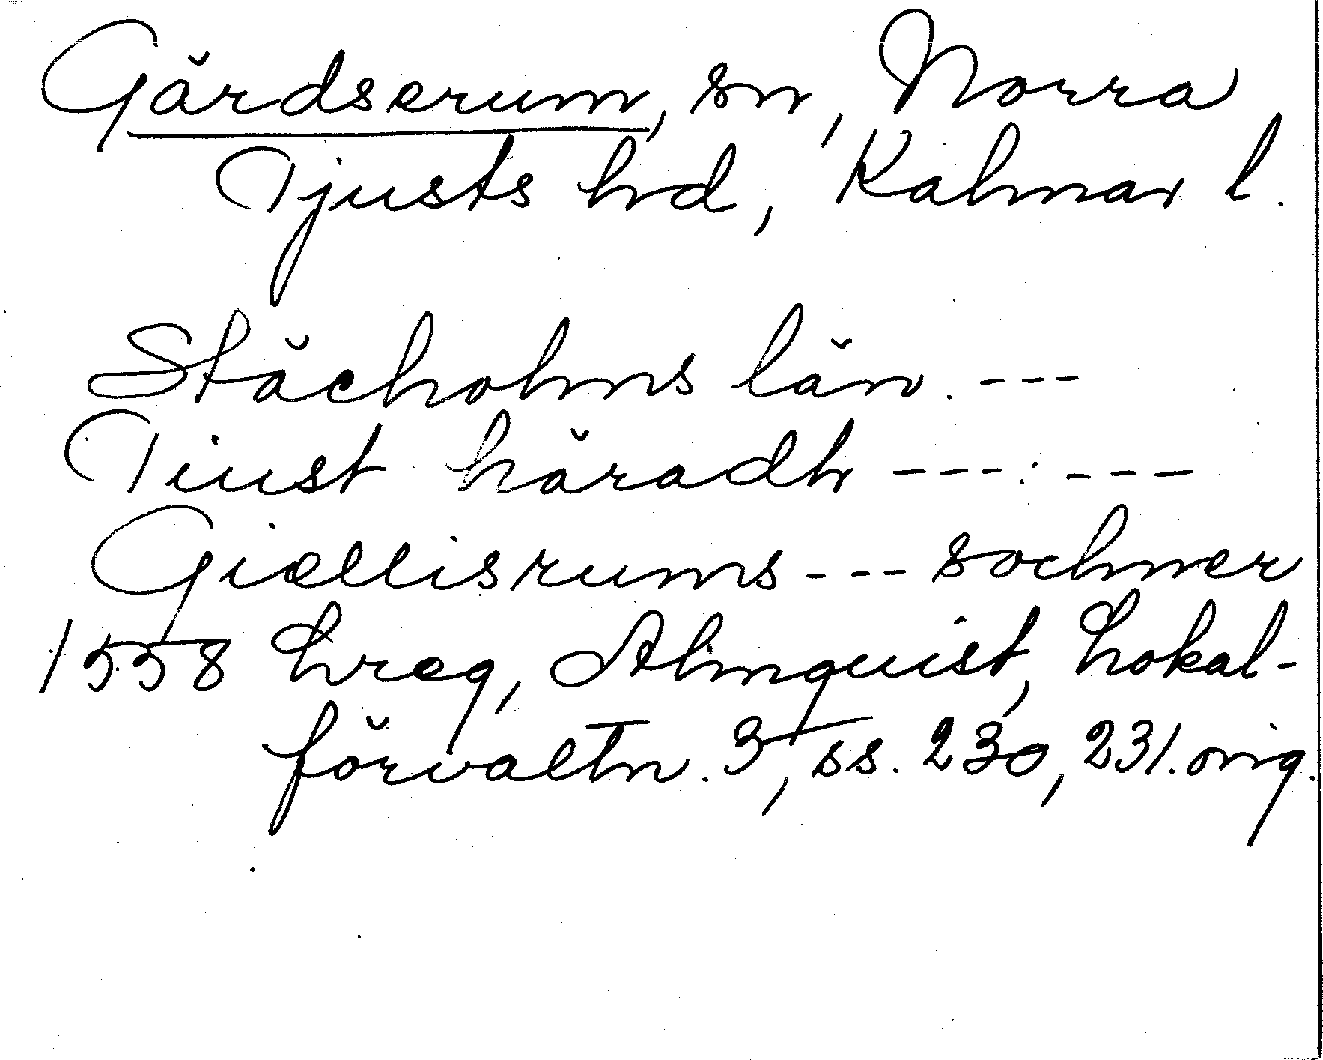 Gärdserum, sn, Norra
Tjusts hd, Kalmar l.
Stächolms län. ---
Tiust häradh --- : ---
Giællisrums --- sochner
1558 Lreg, Almquist, Lokal-
förvaltn. 3, ss. 230, 231. orig.